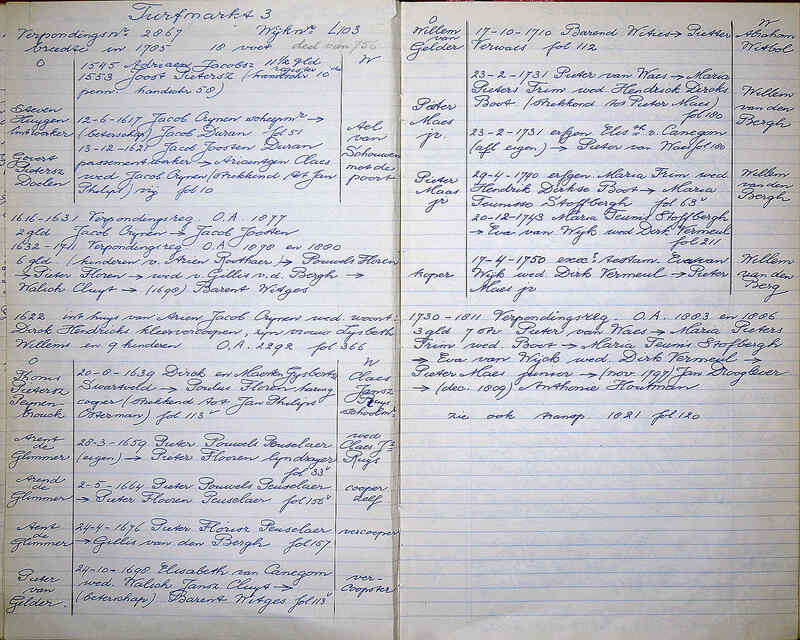 Turfmarkt 3
Verpondingsnr. 2867 Wijknr. L103
breedte in 1705 18 voet deel van 756
O W
1545 Adriaen Jacobsz 11½ gld
1553 Joost Pietersz (handschr 10 de
register
penn. handschr 50)
Steven
Huygen
lintwaker
12-6-1617 Jacob Crynen schepmr →
(beterschap) Jacob Duran fol 51
Gerrit
Pietersz
Doelen
13-12-1621 Jacob Joosten Duran
passementwaker → Ariaentgen Claes
wed Jacob Crynen (strekkend tot Jan
Philips) vrij fol 10
Ael
van
Schouwen
met de
poort
1616-1631 Verpondingsreg. O.A. 1877
2 gld Jacob Crynen → Jacob Joosten
1632-1711 Verpondingsreg O.A. 1878 en 1880
6 gld (kinderen v. Arien Roothaer) → Pouwels Floren
→ Pieter Floren → wed v Gillis v.d. Bergh →
Walich Cluyt → (1698) Barent Witges
1622 int huys van Arien Jacob Crynen wed woont:
Dirck Hendricks cleercoopen, zijn vrouw Lysbeth
Willems en 9 kinderen O.A. 2292 fol 366
O W
Thonis
Pietersz
Pynen-
brouck
20-8-1639 Dirck en Maerten Gysbertsz
Swartveld → Poulus Floren haring
coper (strekkend tot Jan Philips
Osterman) fol 113v
Claes
Jansz
Ruys
schoolmr
Arent
de
Glimmer
28-3-1659 Pieter Pouwels Peuselaer
(eigen) → Pieter Flooren lyndrayer
fol 33v
wed
Claes Jsz
Ruys
Arend
de
Glimmer
2-5-1664 Pieter Pouwels Peuselaer
→ Pieter Flooren Peuselaer fol 156v
cooper
zelf
Aent
de
Glimmer
24-4-1676 Pieter Florisz Peuselaer
→ Gillis van den Bergh fol 157
vercooper
Pieter
van
Gelder.
24-10-1698 Elisabeth van Canegom
wed. Walich Jansz Cluyt →
(beterschap) Barent Witges fol 113v
ver-
coopster
O W
Willem
van
Gelder
17-10-1710 Barend Witjes → Pieter
Verwaes fol 112
Abraham
Witbol
Pieter
Maes
jr.
23-2-1731 Pieter van Waes → Maria
Pieters Frim wed Hendrick Dircks
Boot (strekkend tot Pieter Maes)
fol 180
23-2-1731 erfgen Elisth v. Canegom
(afl eigen) → Pieter van Waes fol 180
Willem
van den
Bergh
Pieter
Maas
jr
29-4-1740 erfgen. Maria Frim wed
Hendrik Dirkse Boot → Maria
Teunisse Stoffbergh fol 63v
20-12-1743 Maria Teunis Stoffbergh
→ Eva van Wyk wed Dirk Vermeul
fol 211
Willem
van den
Bergh
koper
17-4-1750 execs testam. Eva van
Wyk wed Dirk Vermeul → Pieter
Maes jr
Willem
van den
Berg
1730-1811 Verpondingsreg. O.A. 1883 en 1886
3 gld 7 st. Pieter van Waes → Maria Pieters
Frim wed. Boot → Maria Teunis Stofbergh
→ Eva van Wyck wed. Dirk Vermeul →
Pieter Maes junior → (nov 1797) Jan Drooglever
→ (dec. 1809) Anthonie Houtman
zie ook transp. 1821 fol 120